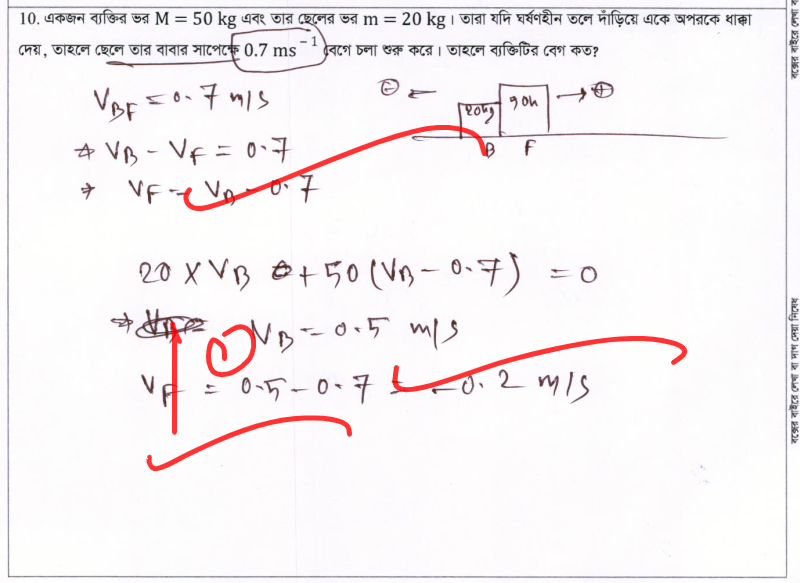 10. একজন ব্যক্তির ভর M = 50 kg এবং তার ছেলের ভর m = 20 kg। তারা যদি ঘর্ষণহীন তলে দাঁড়িয়ে একে অপরকে ধাক্কা
দেয়, তাহলে ছেলে তার বাবার সাপেক্ষে 0.7 ms⁻¹ বেগে চলা শুরু করে। তাহলে ব্যক্তিটির বেগ কত?
V_BF = 0.7 m/s
⊖ ← → ⊕
20kg
B F
⇒ V_B - V_F = 0.7
⇒ V_F = V_B - 0.7
20 × V_B + 50 (V_B - 0.7) = 0
⇒ V_B = 0.5 m/s
V_F = 0.5 - 0.7 = -0.2 m/s
বক্সের বাইরে লেখা বা দাগ দেয়া নিষেধ
বক্সের বাইরে লেখা ব